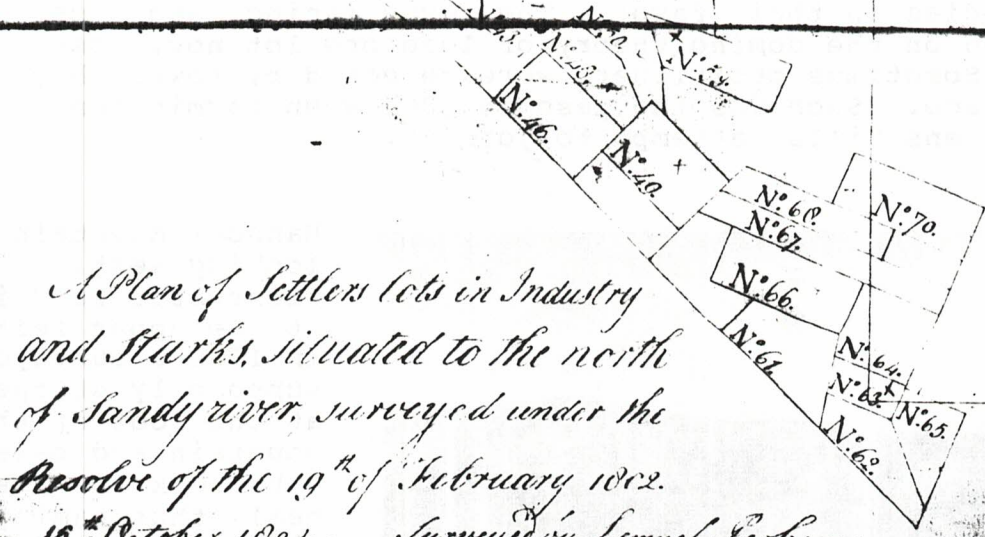 No. 46.
No. 49.
No. 68.
No. 70.
No. 67.
No. 66.
No. 61.
No. 64.
No. 63.
No. 65.
No. 62.
A Plan of Settlers lots in Industry
and Starks, situated to the north
of Sandy river, surveyed under the
Resolve of the 19th of February 1802.
October
Surveyed by Lemuel